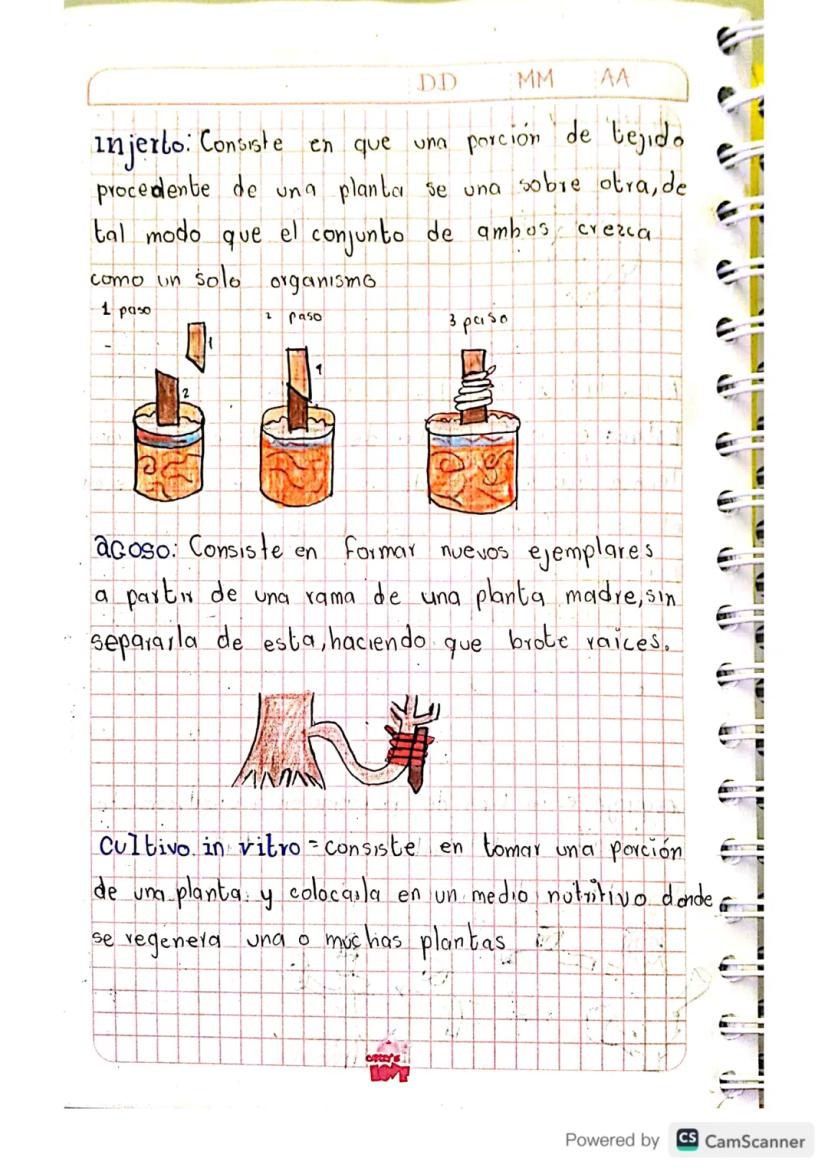 DD MM AA
Injerto: Consiste en que una porción de tejido
procedente de una planta se una sobre otra, de
tal modo que el conjunto de ambos crezca
como un solo organismo
1 paso 2 paso 3 paso
1 1
2
acoso: Consiste en formar nuevos ejemplares
a partir de una rama de una planta madre, sin
separarla de esta, haciendo que brote raices.
Cultivo in vitro = consiste en tomar una porción
de una planta y colocarla en un medio nutritivo donde
se regenera una o muchas plantas
LOVE
Powered by CS CamScanner